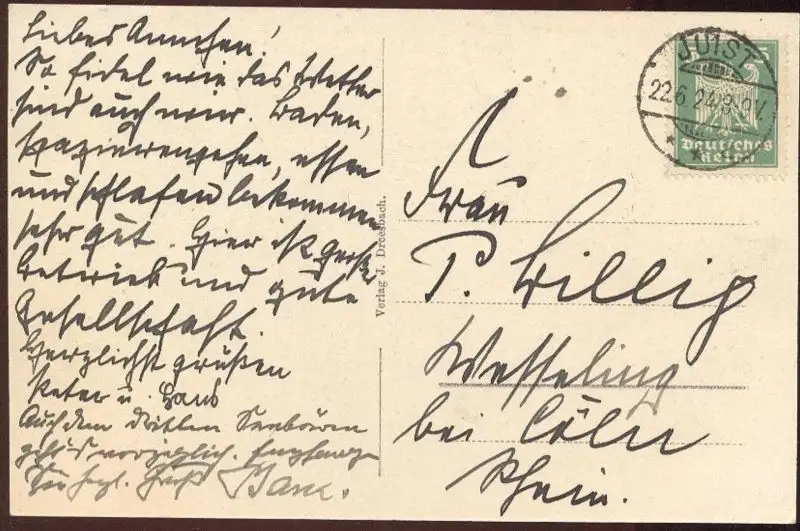 Liebes Annchen!
So fidel wie das Wetter
sind auch wir. Baden,
spazierengehen, essen
und schlafen bekommen
sehr gut. Hier ist großer
betrieb und gute
Gesellschaft.
Herzlichst grüßen
Peter u. Hans
Auch dem dritten Seebären
geht's vorzüglich. Empfange
Gruß
Verlag J. Dreesbach.
JUIST
22.6.24.8-9V.
Deutsches
Reich
5
Frau
P. Willig
Wesseling
bei Cöln
Rhein.